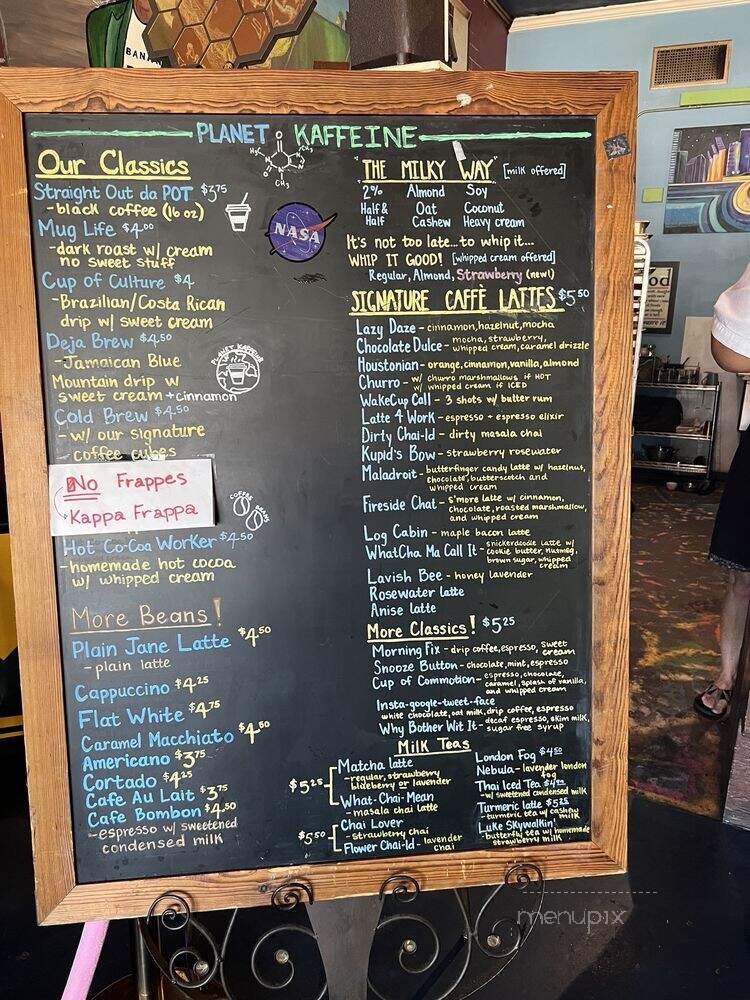 BANAN
PLANET KAFFEINE
Our Classics
Straight Out da POT $3.75
-black coffee (16 oz)
Mug Life $4.00
-dark roast w/ cream
no sweet stuff
Cup of Culture $4
-Brazilian/Costa Rican
drip w/ sweet cream
Deja Brew $4.50
-Jamaican Blue
Mountain drip w
sweet cream +cinnamon
Cold Brew $4.50
-w/ our signature
coffee cubes
No Frappes
Kappa Frappa
Hot Co-Coa Worker $4.50
-homemade hot cocoa
w/ whipped cream
More Beans!
Plain Jane Latte $4.50
-plain latte
Cappuccino $4.25
Flat White $4.75
Caramel Macchiato $4.50
Americano $3.75
Cortado $4.25
Cafe Au Lait $3.75
Cafe Bombon $4.50
-espresso w/ sweetened
condensed milk
H₃C
CH₃
CH₃
NASA
PLANET KAFFEINE
COFFEE BEANS
"THE MILKY WAY" [milk offered]
2% Almond Soy
Half & Half Oat Coconut
Cashew Heavy cream
It's not too late...to whip it...
WHIP IT GOOD! [whipped cream offered]
Regular, Almond, Strawberry (new!)
SIGNATURE CAFFÈ LATTES $5.50
Lazy Daze - cinnamon, hazelnut, mocha
Chocolate Dulce - mocha, strawberry,
whipped cream, caramel drizzle
Houstonian - orange, cinnamon, vanilla, almond
Churro - w/ churro marshmallows if HOT
w/ whipped cream if ICED
WakeCup Call - 3 shots w/ butter rum
Latte 4 Work - espresso + espresso elixir
Dirty Chai-ld - dirty masala chai
Kupid's Bow - strawberry rosewater
Maladroit - butterfinger candy latte w/ hazelnut,
chocolate, butterscotch and
whipped cream
Fireside Chat - s'more latte w/ cinnamon,
chocolate, roasted marshmallow,
and whipped cream
Log Cabin - maple bacon latte
WhatCha Ma Call It - snickerdoodle latte w/
cookie butter, nutmeg,
brown sugar, whipped
cream
Lavish Bee - honey lavender
Rosewater latte
Anise latte
More Classics! $5.25
Morning Fix - drip coffee, espresso, sweet
cream
Snooze Button - chocolate, mint, espresso
Cup of Commotion - espresso, chocolate,
caramel, splash of vanilla,
and whipped cream
Insta-google-tweet-face
white chocolate, oat milk, drip coffee, espresso
Why Bother Wit It - decaf espresso, skim milk,
sugar free syrup
Milk Teas
$5.25
Matcha latte
-regular, strawberry
blueberry or lavender
What-Chai-Mean
-masala chai latte
$5.50
Chai Lover
-strawberry chai
Flower Chai-ld - lavender
chai
London Fog $4.50
Nebula - lavender london
fog
Thai Iced Tea
-w/ sweetened condensed milk
Turmeric latte $5.25
-turmeric tea w/ cashew
milk
Luke Skywalkin'
-butterfly tea w/ homemade
strawberry milk
menupix